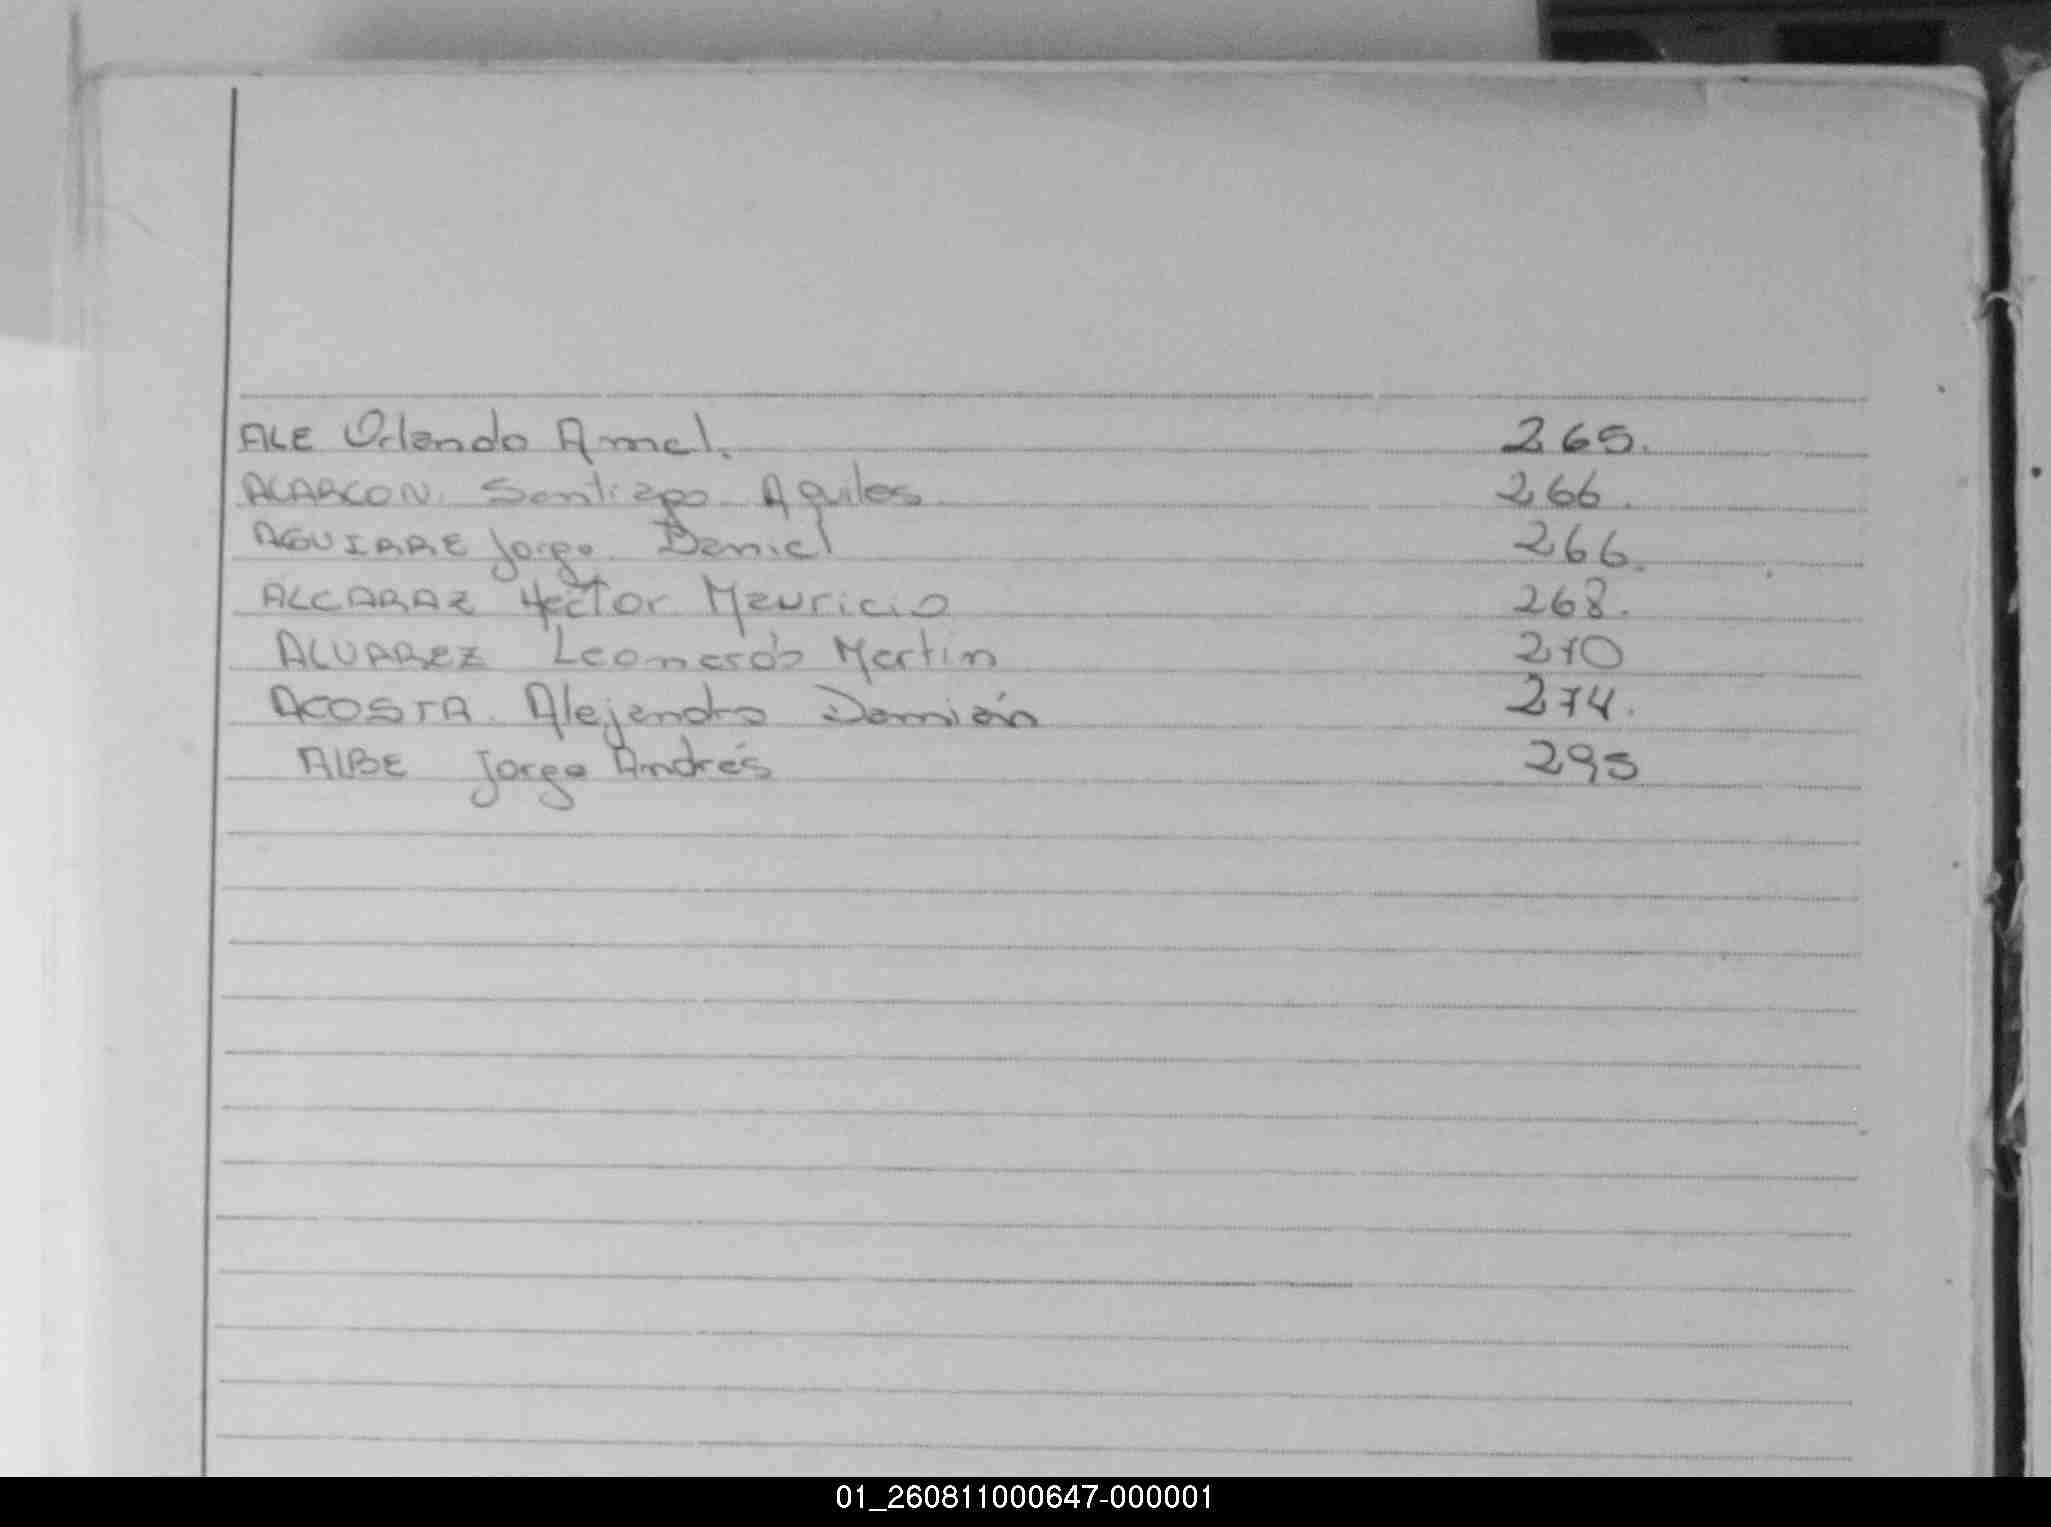 ALE Orlando Amel. 265.
ALARCON. Santiago Aquiles 266.
AGUIRRE Jorge Daniel 266.
ALCARAZ Hector Mauricio 268.
ALVAREZ Leonardo Martin 270
ACOSTA. Alejandro Damián 274.
AlBE Jorge Andrés 295
01_260811000647-000001